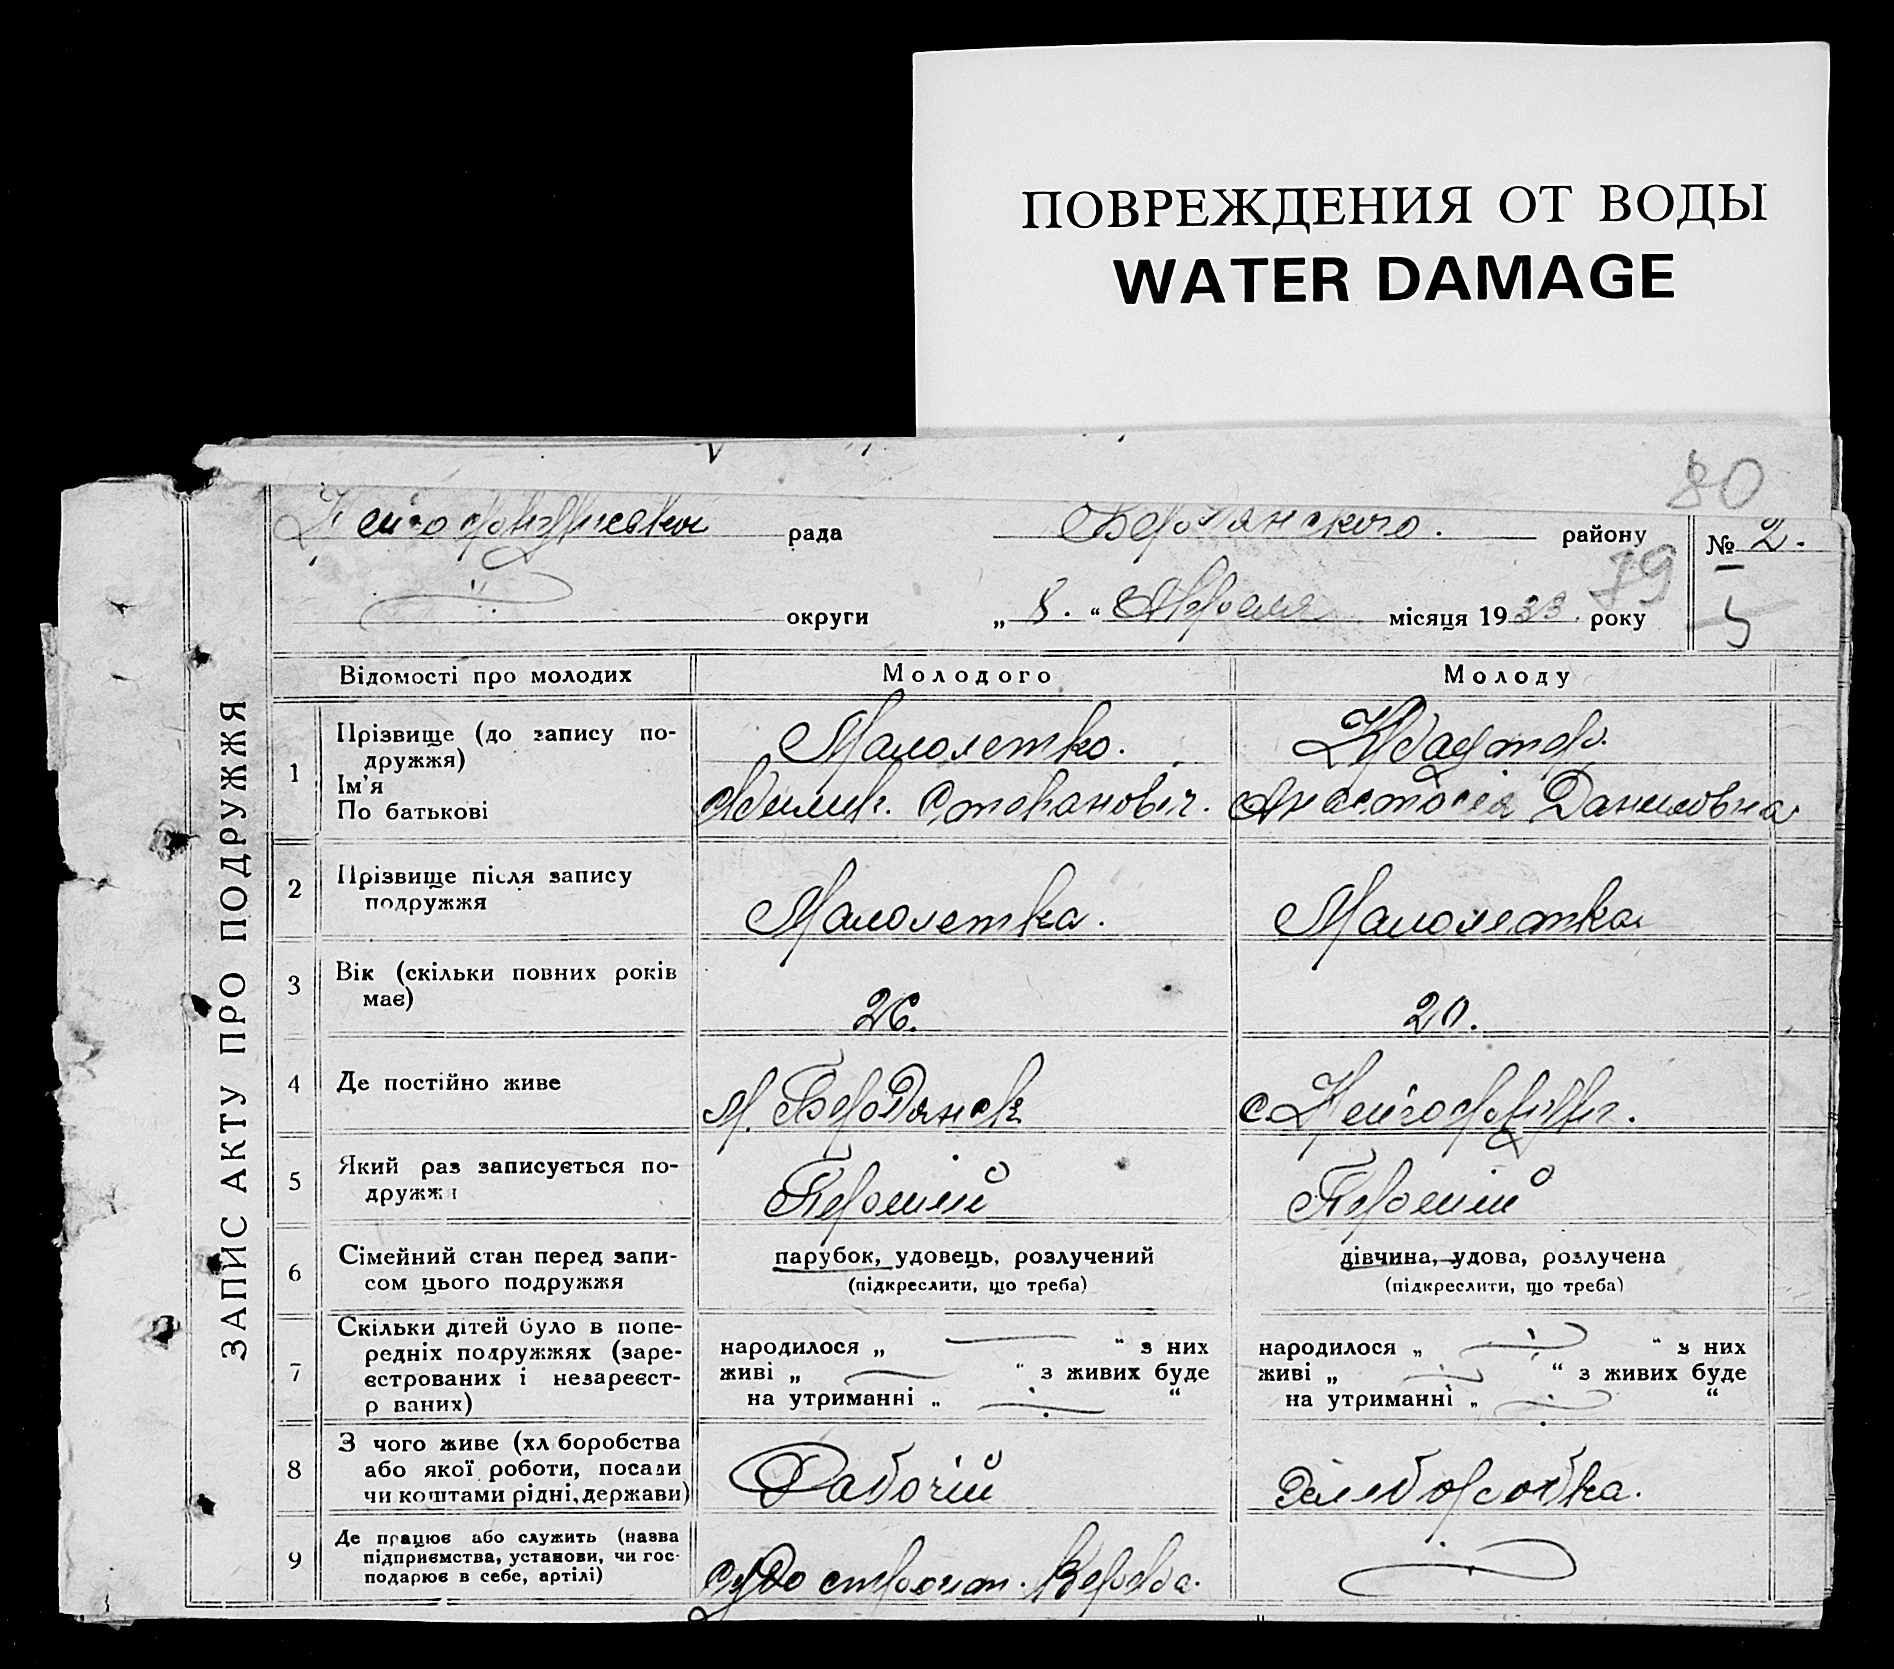 ПОВРЕЖДЕНИЯ ОТ ВОДЫ
WATER DAMAGE
80
рада Бердянского. району № 2.
79
округи „ 8. “ Апреля місяця 1933. року 5
ЗАПИС АКТУ ПРО ПОДРУЖЖЯ
Відомості про молодих Молодого Молоду
1 Прізвище (до запису по-
дружжя) Малолетко.
Ім'я
По батькові Степанович. Анастасія Даниловна
2 Прізвище після запису
подружжя Малолетка. Малолетка
3 Вік (скільки повних років
має) 26. 20.
4 Де постійно живе м. Бердянск с.
5 Який раз записується по-
дружжя Первий Первий
6 Сімейний стан перед запи-
сом цього подружжя парубок, удовець, розлучений
(підкреслити, що треба) дівчина, удова, розлучена
(підкреслити, що треба)
7 Скільки дітей було в попе-
редніх подружжях (заре-
єстрованих і незареєст-
р ваних) народилося „ “ з них
живі „ “ з живих буде
на утриманні „ “ народилося „ “ з них
живі „ “ з живих буде
на утриманні „ “
8 З чого живе (хл боробства
або якої роботи, посади
чи коштами рідні, держави) Рабочій
9 Де працює або служить (назва
підприємства, установи, чи гос-
подарює в себе, артілі)